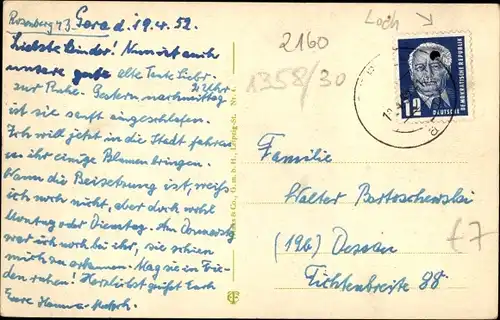 Rosenberg 73. Gera d. 19.4.52.
Liebste Kinder! Nun ist auch
unsere gute alte Tante Liesbr
zur Ruhe. Gestern nachmittag
2 Uhr
ist sie sanft eingeschlafen.
Ich will jetzt in die Stadt fahren
u. ihr einige Blumen bringen.
Wann die Beisetzung ist, weiß
ich noch nicht, aber doch wohl
Montag oder Dienstag. Am Donnerstag
war ich noch bei ihr, sie schien
mich zu erkennen. Mag sie in Frie-
den ruhen! Herzlichst grüßt Euch
Eure Hanna-
& Co., G. m. b. H., Leipzig
Loch
2160
1358/30
DEUTSCHE
DEMOKRATISCHE REPUBLIK
12
Familie
Walter Bartoschewski
(19b) Dessau
Fichtenbreite 88
€7